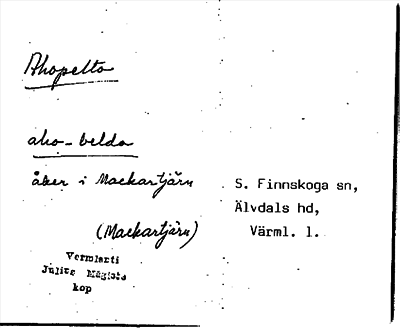 Ahopelto
aho-beldo
åker i Mackartjärn
(Mackartjärn)
Vermlanti
Julius Mägiste
kop
S. Finnskoga sn,
Älvdals hd,
Värml. l.